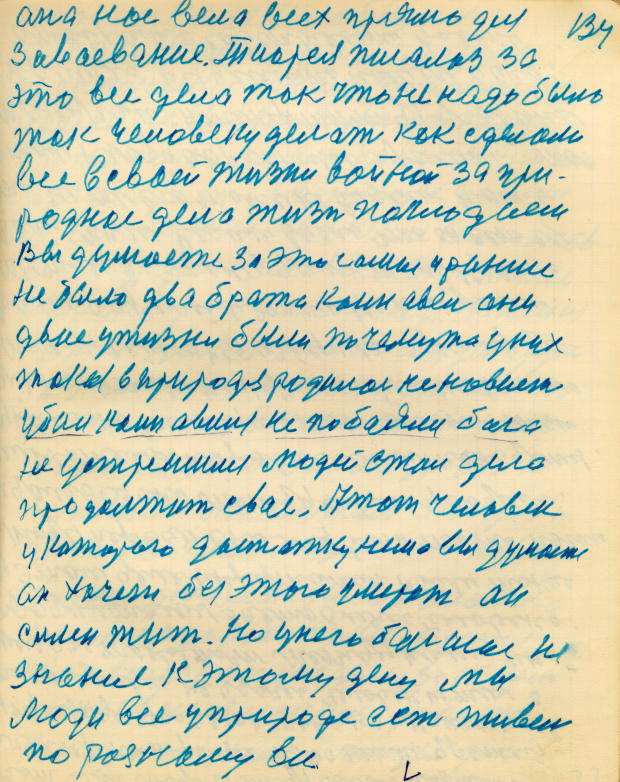 она нас вела всех прямо для 134
завоевание. Тиория писалоз за
это все дела так что не надо было
так человеку делат как сделали
все в своей жизни войной за при-
родное дело жизн
Вы думаете за это самае ираньше
не было два брата каин авел они
двае ужизни были почемута у них
така в природе родилас не новист
убил каин авиля не побаялся бога
не устрешился людей стал дело
продолжат свае. А тот человек
у каторого достатку нема вы думаете
он хочет без этого умерат он
силен жит. Но у него балшое не
знание к этому делу мы
люди все уприроде сст живем
по разному вси